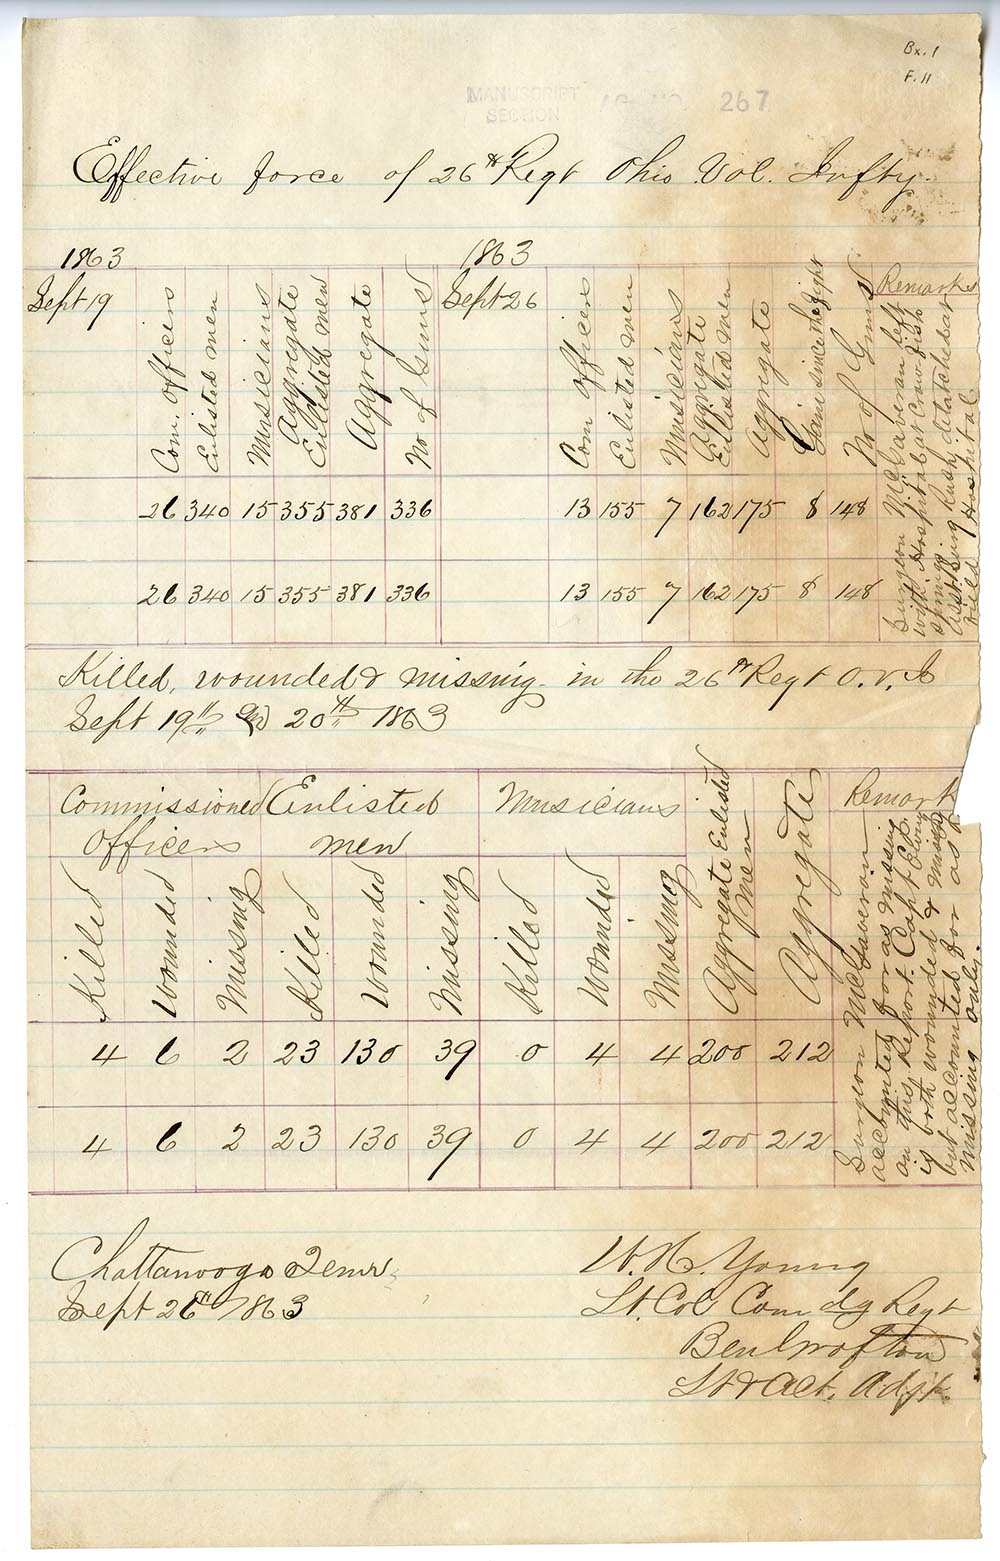 Bx. 1
F. 11
MANUSCRIPT
SECTION
267
Effective force of 26th Regt Ohio Vol. Infty.
1863 1863
Sept 19 Com. officers Enlisted men Musicians Aggregate Enlisted men Aggregate No of Guns Sept 26 Com officers Enlisted men Musicians Aggregate Enlisted men Aggregate Gain since the fight No of Guns Remarks
26 340 15 355 381 336 13 155 7 162 175 8 148
26 340 15 355 381 336 13 155 7 162 175 8 148
Surgeon McGaveran left
with Hospital at Crawfish
springs
Asst Surg Rush, detatched at
field Hospital
Killed, wounded & missing in the 26th Regt O.V.I.
Sept 19th & 20th 1863
Commissioned Officers Enlisted men Musicians Aggregate Enlisted Men Aggregate Remark
Killed Wounded Missing Killed Wounded Missing Killed Wounded Missing
4 6 2 23 130 39 0 4 4 200 212
4 6 2 23 130 39 0 4 4 200 212
Surgeon McGaveran
accounted for as missing
on this Report Capt
is both wounded & missing
but accounted for as
missing only.
Chattanooga Tenn
Sept 26th 1863
W. H. Young
Lt. Col Comdg Regt
Lt & Act. Adjt.